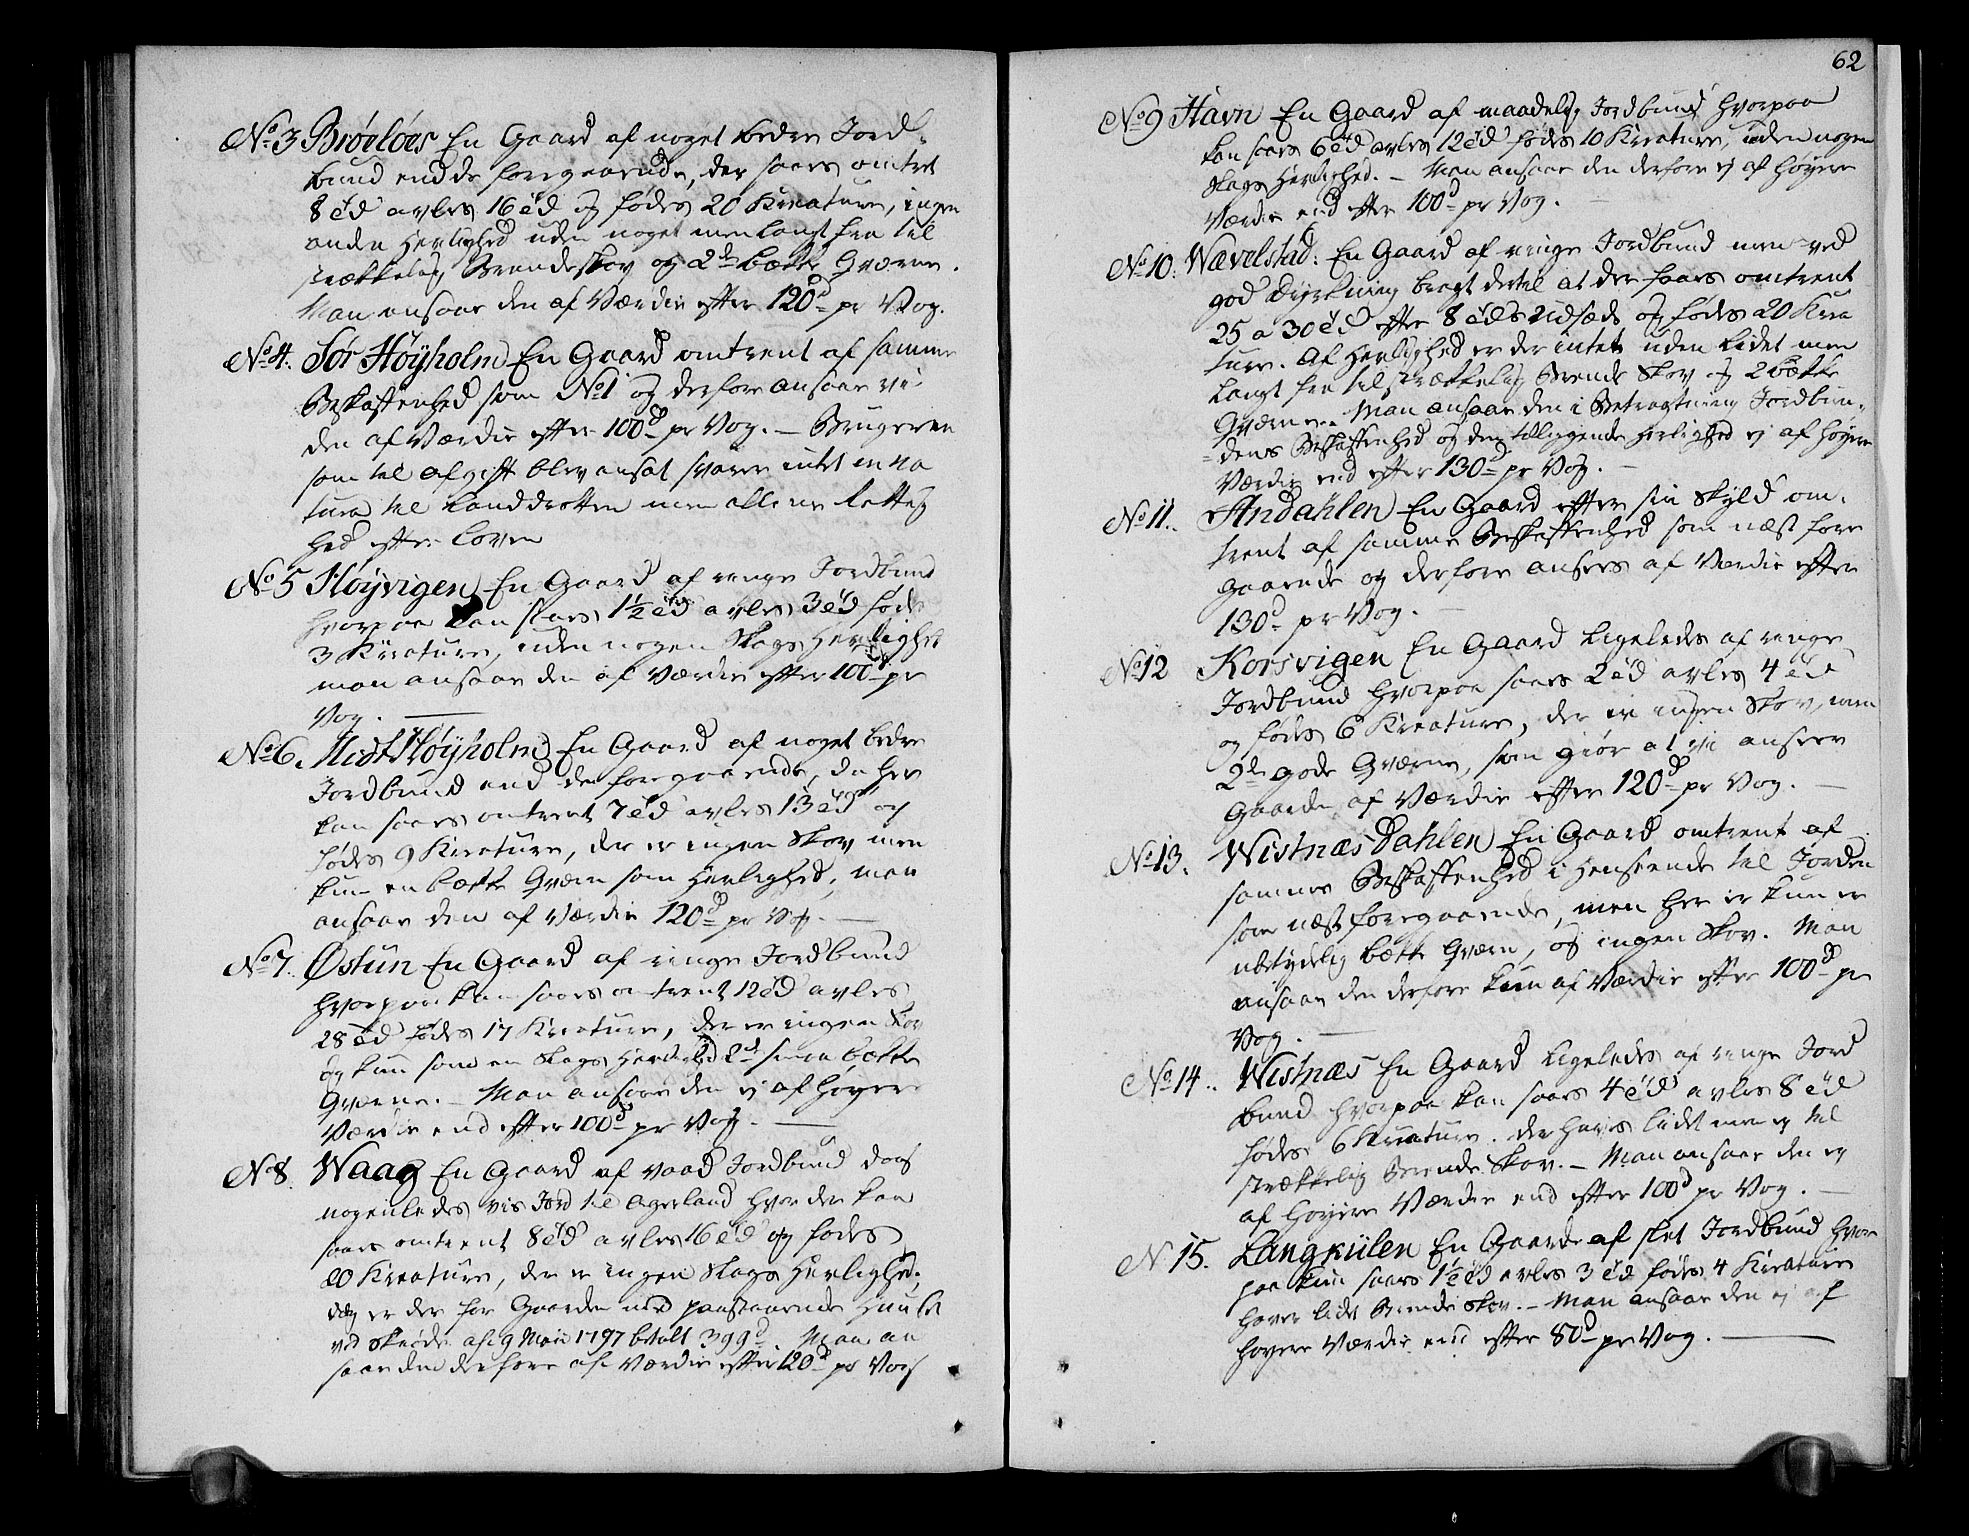 No 3 Brøeløes En Gaard af noget bedre Jord-
bund end de foregaaende, der saaes omtret
8 td avles 16 td og fødes 20 Kreature, ingen
anden Herlighed uden noget men langt fra til
strækkelig Brændeskov og 2de bække Qværne.
Man ansaae den af Værdie efter 120d pr Vog.
No 4. Sør Høyholm En Gaard omtrent af samme
Beskaffenhed som No 1 og derfore ansaae vi
den af Værdie efter 100d pr Vog. — Brugeren
som til afgift blev ansat svarer intet in na
tura til Landdrotten men allene Rettig
hed efter Loven
No 5 Høyvigen En Gaard af ringe Jordbund
hvorpaa kan saaes 1½ td avles 3 td fødes
3 Kreature, uden nogen Slags Herlighed
man ansaae den af Værdie efter 100d pr
Vog. —
No 6. Midt Høyholm En Gaard af noget bedre
Jordbund end de foregaaende, da her
kan saaes omtrent 7 td avles 13 td og
fødes 9 Kreature, der er ingen Skov men
kun en bække Qværn som Herlighed, man
ansaae den af Værdie 120d pr Vog. —
No 7. Østun En Gaard af ringe Jordbund
hvorpaa kan saaes omtrent 12 td avles
28 td fødes 17 Kreature, der er ingen Skov
og kun som en Slags Herlighed 2de smaa bække
Qværne. — Man ansaae den ej af høyere
Værdie end efter 100d pr Vog. —
No 8. Waag En Gaard af vaad Jordbund dog
nogenledes vis Jord til Agerland hvor der kan
saaes omtrent 8 td avles 16 td og fødes
20 Kreature, der er ingen Slags Herlighed.
dog er der for Gaarden med paastaaende Huuse
ved Skiøde af 9 Maii 1797 betalt 399d. Man an
saae den derfore af Værdie efter 120d pr Vog
62
No 9 Havn En Gaard af maadelig Jordbund hvorpaa
kan saaes 6 td avles 12 td fødes 10 Kreature, uden nogen
Slags Herlighed. — Man ansaae den derfore ej af høyere
Værdie end efter 100d pr Vog.
No 10: Wævelstad: En Gaard af ringe Jordbund men ved
god Dyrkning bragt dertil at der saaes omtrent
25 a 30 td efter 8 tds Udsæd og fødes 20 Krea
ture. Af Herlighed er der intet uden lidet men
langt fra tilstrækkelig Brende Skov og 2 bække
Qværne. Man ansaae den i Betragtning Jordbun-
dens Beskaffenhed og den tilliggende Herlighed ej af høyere
Værdie end efter 130d pr Vog. —
No 11. Andahlen En Gaard efter sin Skyld om-
trent af samme Beskaffenhed som næst fore
gaaende og derfore ansees af Værdie efter
130d pr Vog. —
No 12 Korsvigen En Gaard ligeledes af ringe
Jordbund hvorpaa saaes 2 td avles 4 td
og fødes 6 Kreature, der er ingen Skov, men
2de gode Qværne, som giør at vi ansaae
Gaarden af Værdie efter 120d pr Vog. —
No 13. Wistnæs Dahlen En Gaard omtrent af
sammes Beskaffenhed i Henseende til Jorden
som næstforegaaende, men her er kun en
ubetydelig bække Qværn, og ingen Skov. Man
ansaae den derfore kun af Værdie efter 100d pr
Vog. —
No 14.. Wistnæs En Gaard ligeledes af ringe Jord
bund hvorpaa kan saaes 4 td avles 8 td
fødes 6 Kreature. der haves lidet men ej til
strækkelig Brende Skov. — Man ansaae den ej
af høyere Værdie end efter 100d pr Vog. —
No 15. Langkiilen En Gaard af slet Jordbund hvor
paa kun saaes 1½ td avles 3 td fødes 4 Kreature
haver lidt Brende Skov. — Man ansaae den ej af
høyere Værdie end efter 80d pr Vog. —